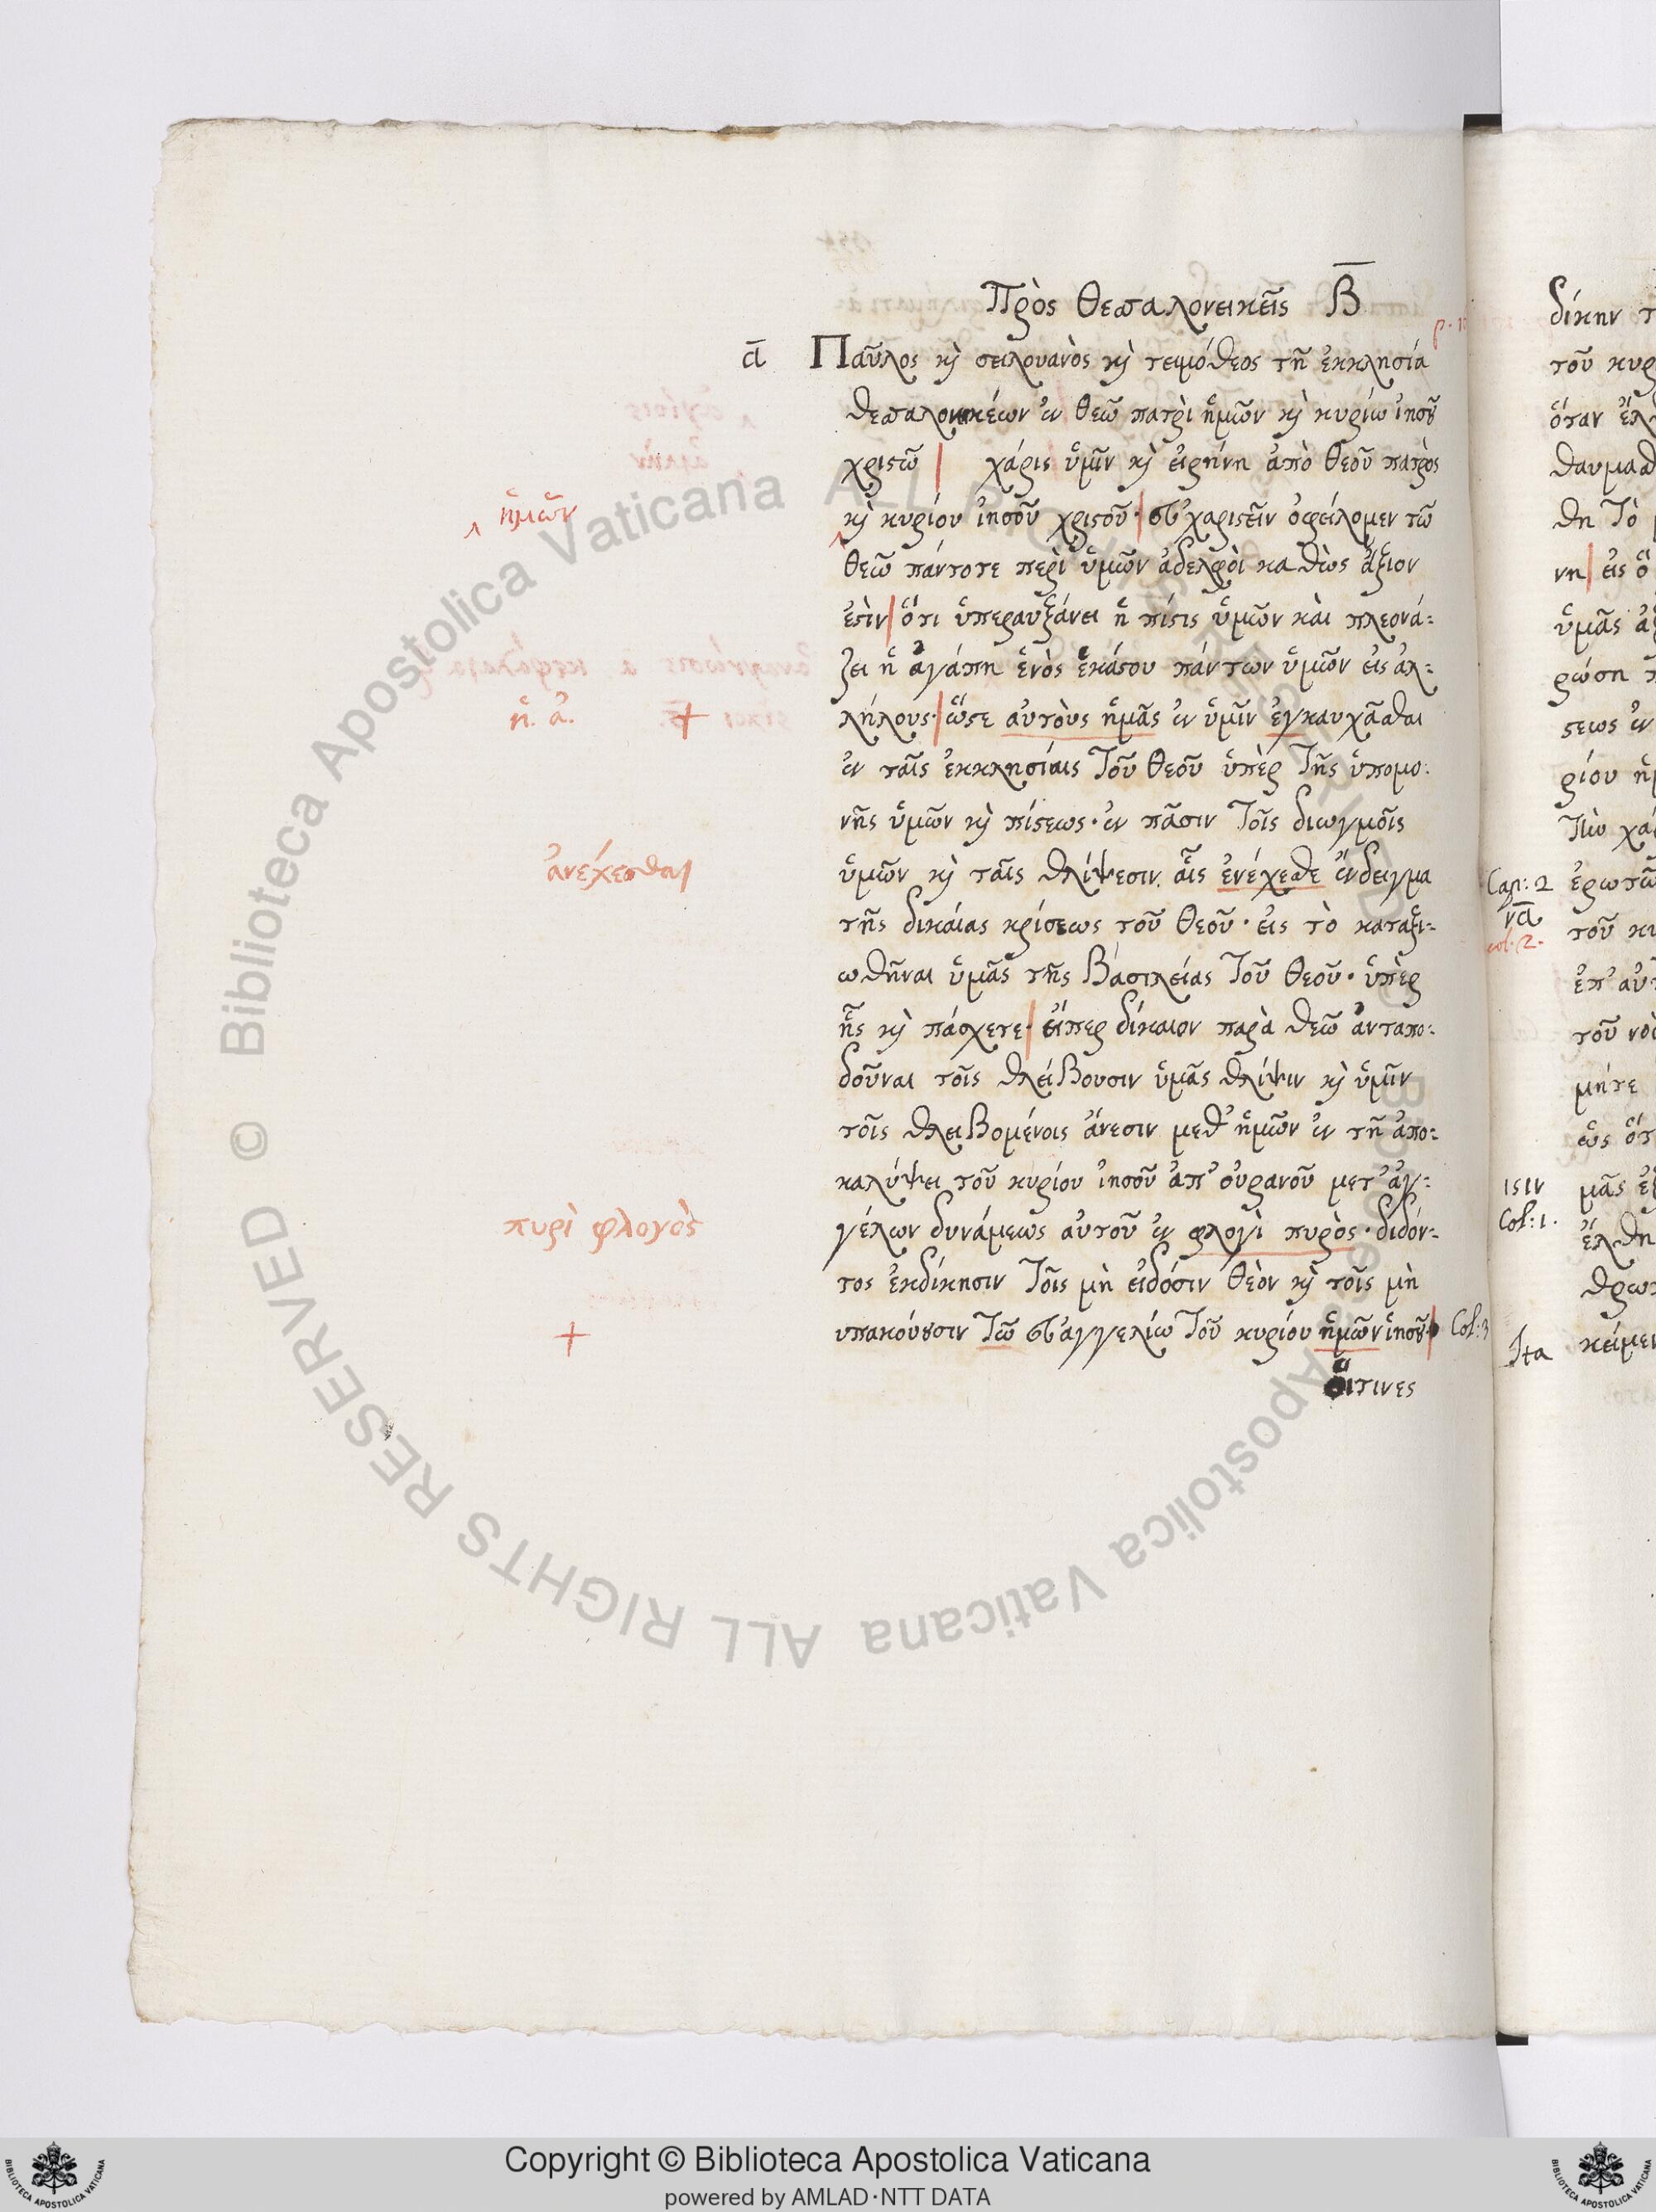 Πρὸς Θεσσαλονεικεῖς Β̅
α̅ Παῦλος κ̀ σειλουανὸς κ̀ τειμόθεος τῆ ἐκκλησία
θεσσαλονικέων ἐν θεῶ πατρὶ ἡμῶν κ̀ κυρίω ἰησοῦ
χριστῶ | χάρις ὑμῖν κ̀ εἰρήνη ἀπὸ θεοῦ πατρὸς
‸ ἡμῶν
‸ κ̀ κυρίου ἰησοῦ χριστοῦ· | εὐχαριστεῖν ὀφείλομεν τῶ
θεῶ πάντοτε περὶ ὑμῶν ἀδελφοὶ καθὼς ἄξιον
ἐστὶν | ὅτι ὑπεραυξάνει ἡ πίστις ὑμῶν καὶ πλεονά-
ζει ἡ ἀγάπη ἑνὸς ἑκάστου πάντων ὑμῶν εἰς ἀλ-
ἡ. ἀ. +
λήλους· | ὥστε αὐτοὺς ἡμᾶς ἐν ὑμῖν ἐγκαυχᾶσθαι
ἐν ταῖς ἐκκλησίαις τοῦ θεοῦ ὑπὲρ τῆς ὑπομο-
νῆς ὑμῶν κ̀ πίστεως· ἐν πᾶσιν τοῖς διωγμοῖς
ἀνέχεσθαι
ὑμῶν κ̀ ταῖς θλίψεσιν. αἷς ἐνέχεσθε ἔνδειγμα
τῆς δικαίας κρίσεως τοῦ θεοῦ· εἰς τὸ καταξι-
ωθῆναι ὑμᾶς τῆς βασιλείας τοῦ θεοῦ· ὑπὲρ
ἧς κ̀ πάσχετε· | εἴπερ δίκαιον παρὰ θεῶ ἀνταπο-
δοῦναι τοῖς θλείβουσιν ὑμᾶς θλίψιν κ̀ ὑμῖν
τοῖς θλειβομένοις ἄνεσιν μεθ' ἡμῶν ἐν τῆ ἀπο-
καλύψει τοῦ κυρίου ἰησοῦ ἀπ' οὐρανοῦ μετ' ἀγ-
πυρὶ φλογὸς
γέλων δυνάμεως αὐτοῦ ἐν φλογὶ πυρὸς· διδόν-
τος ἐκδίκησιν τοῖς μὴ εἰδόσιν θεὸν κ̀ τοῖς μὴ
+
υπακούουσιν τῶ εὐαγγελίω τοῦ κυρίου ἡμῶν ἰησοῦ· | Col: 3
οἵτινες
δίκην
τοῦ κυρ
ὅταν ἔλ
θαυμασ
θη τὸ
νη | εἰς ὃ
ὑμᾶς ἀξ
ρώση
στεως ἐν
ρίου ἡμ
τὴν χά
Cap: 2 ἐρωτῶ
να̅
col. 2. τοῦ κυ
ἐπ' αὐτ
τοῦ νοὸ
μήτε
ὡς ὅτ
1514 μᾶς ἐξ
Col: 1. ἔλθη
θρωπ
Ita κείμεν
© Biblioteca Apostolica Vaticana ALL RIGHTS RESERVED
Copyright © Biblioteca Apostolica Vaticana
powered by AMLAD·NTT DATA
BIBLIOTECA APOSTOLICA VATICANA